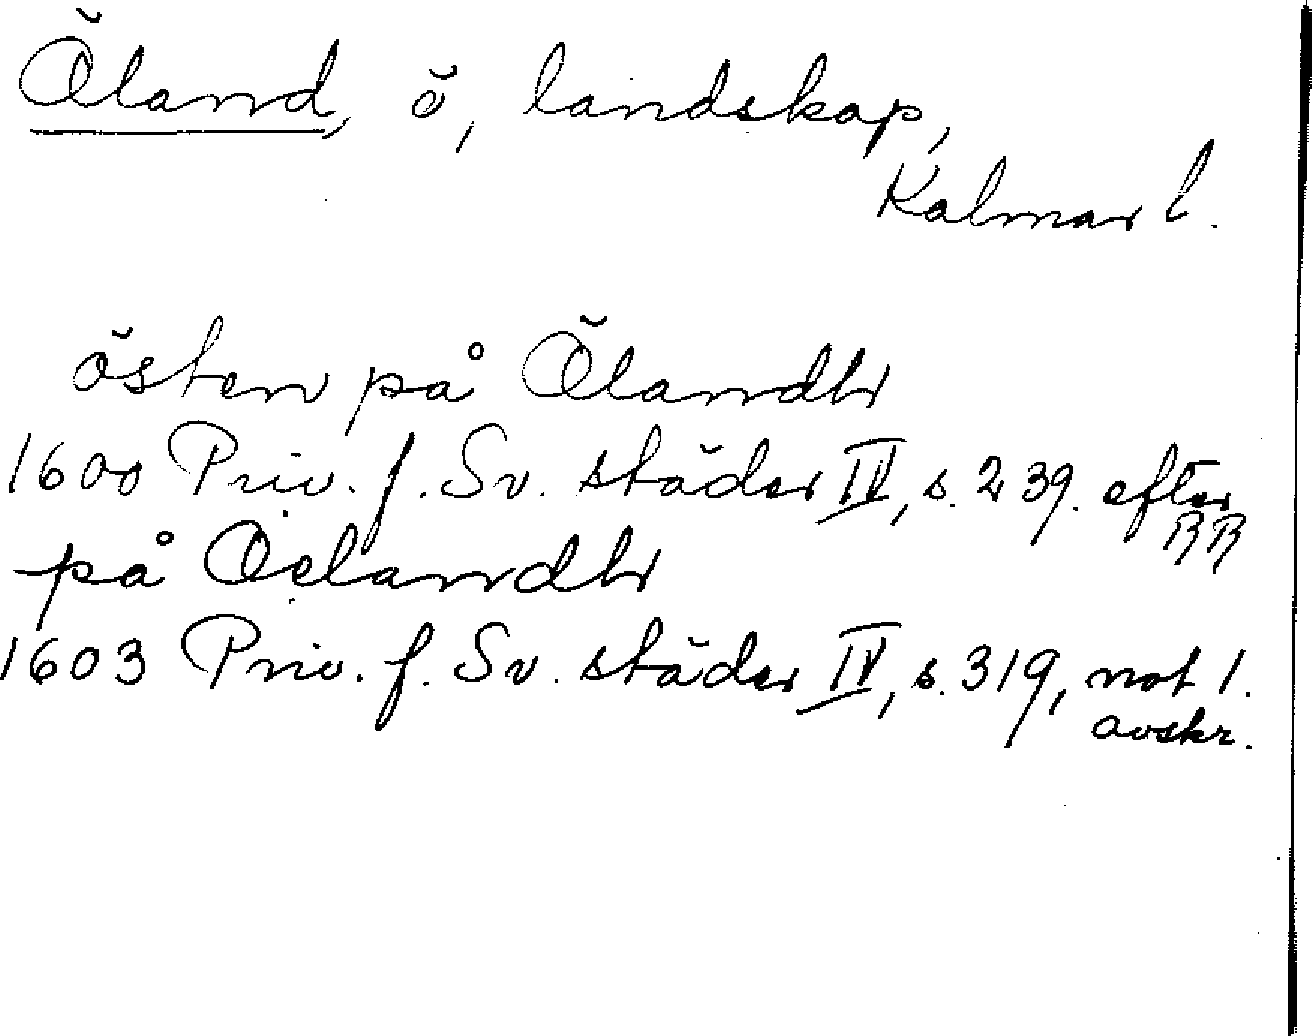 Öland, ö, landskap,
Kalmar l.
östen på Ölandh
1600 Priv. f. Sv. städer IV, s. 239. efter
RR
på Öelandh
1603 Priv. f. Sv. städer IV, s. 319, not 1.
avskr.